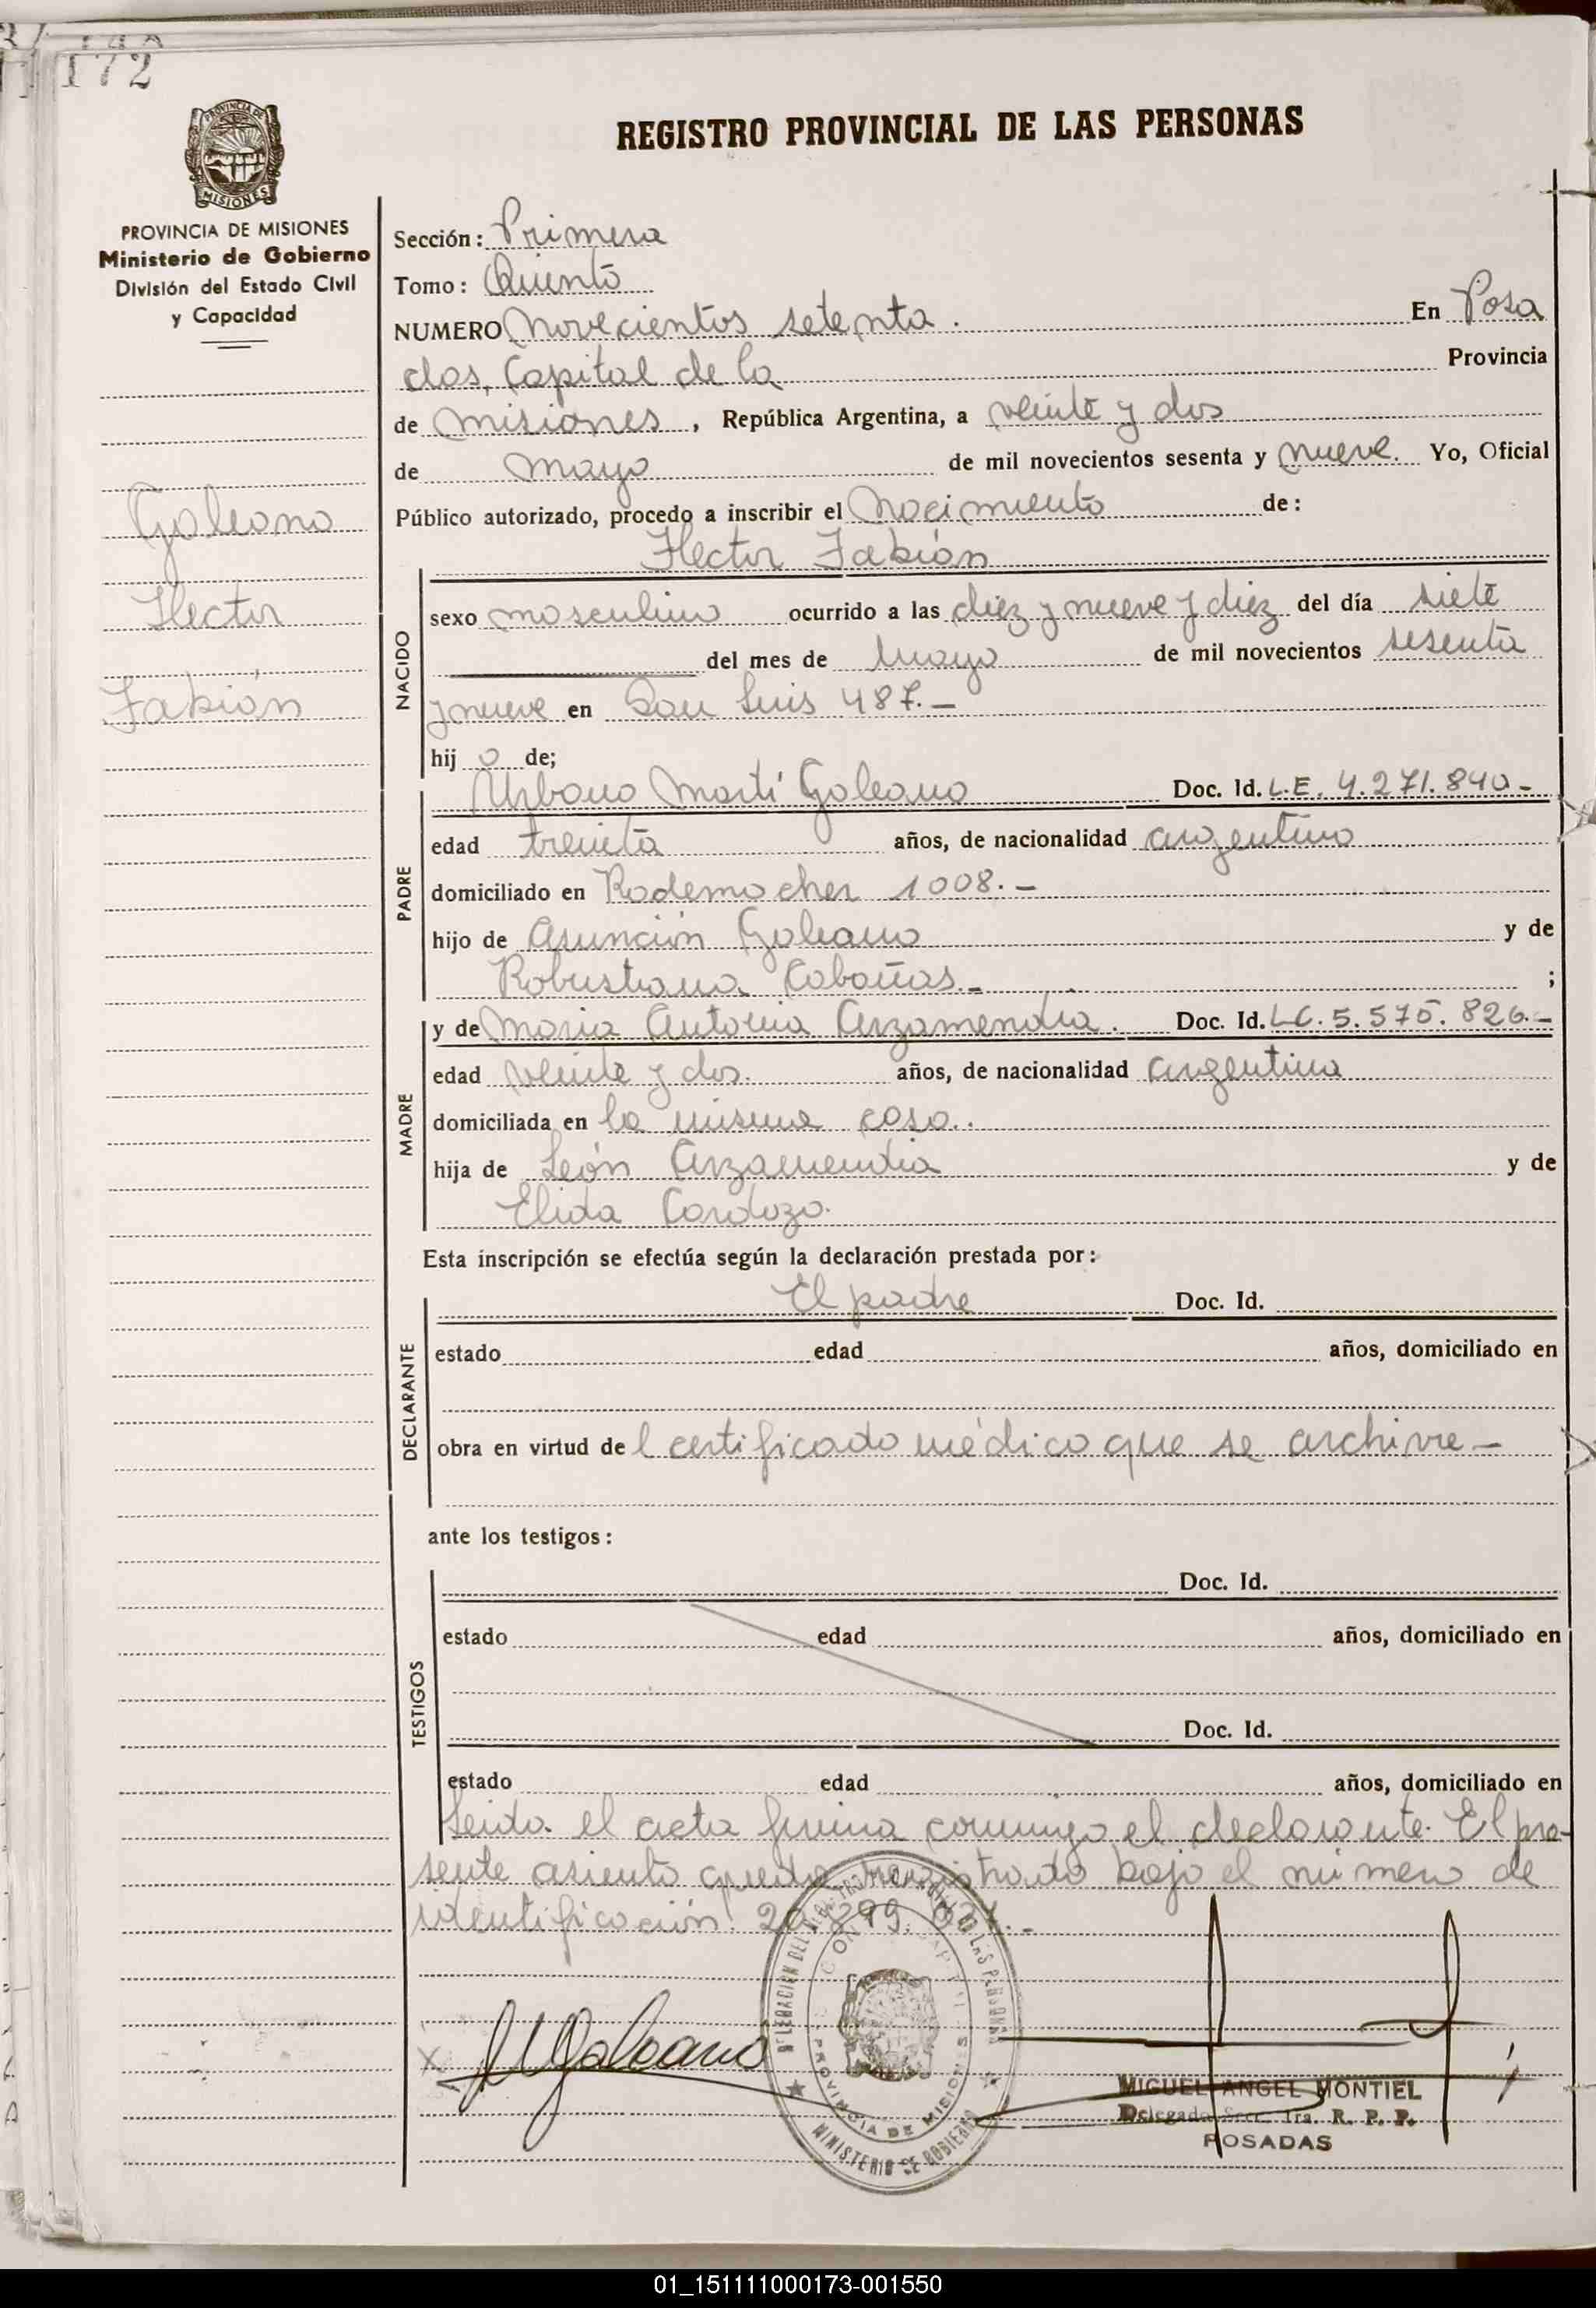 172
REGISTRO PROVINCIAL DE LAS PERSONAS
PROVINCIA DE MISIONES
Ministerio de Gobierno
División del Estado Civil
y Capacidad
Galeano
Hector
Fabián
Sección: Primera
Tomo: Quinto
NUMERO Novecientos setenta. En Posa
das, Capital de la Provincia
de Misiones, República Argentina, a veinte y dos
de Mayo de mil novecientos sesenta y nueve. Yo, Oficial
Público autorizado, procedo a inscribir el Nacimiento de:
Hector Fabián
NACIDO
sexo masculino ocurrido a las diez y nueve y diez del día siete
del mes de Mayo de mil novecientos sesenta
y nueve en San Luis 487.-
hij o de;
PADRE
Urbano Martí Galeano Doc. Id. L.E. 4.271.840-
edad treinta años, de nacionalidad argentino
domiciliado en Rademacher 1008.-
hijo de Asunción Galeano y de
Robustiana Cabañas.- ;
MADRE
y de Maria Antonia Arzamendia. Doc. Id. L.C. 5.575.826.-
edad veinte y dos. años, de nacionalidad argentina
domiciliada en la misma casa.
hija de León Arzamendia y de
Elida Cardozo.
Esta inscripción se efectúa según la declaración prestada por:
DECLARANTE
El padre Doc. Id.
estado edad años, domiciliado en
obra en virtud de l certificado médico que se archive-
ante los testigos:
TESTIGOS
Doc. Id.
estado edad años, domiciliado en
Doc. Id.
estado edad años, domiciliado en
Leida el acta firma conmigo el declarante. El pre-
sente asiento queda registrado bajo el número de
identificación: 20.299.
DELEGACION DEL REGISTRO PROVINCIAL DE LAS PERSONAS
PROVINCIA DE MISIONES
MINISTERIO DE GOBIERNO
X Galeano
MIGUEL ANGEL MONTIEL
Delegado Secc. 1ra. R. P. P.
POSADAS
01_151111000173-001550